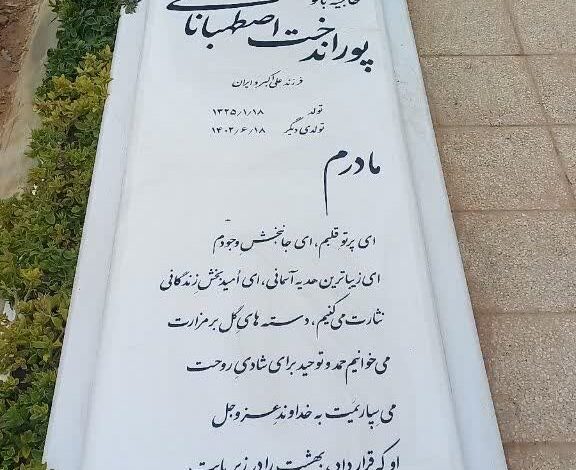 حاجیه بانو
پوراندخت اصطهباناتی
فرزند علی اکبر و ایران
تولد ۱۳۲۵/۱/۱۸
تولدی دیگر ۱۴۰۲/۶/۱۸
مادرم
ای پرتو قلبم، ای جانبخشِ وجودم
ای زیباترین هدیه آسمانی، ای اُمیدبخش زندگانی
نثارت می‌کنیم، دسته های گل بر مزارت
می‌خوانیم حمد و توحید برای شادیِ روحت
می‌سپاریمَت به خداوندِ عزوجل
او که قرار داد، بهشت را در زیر پایت